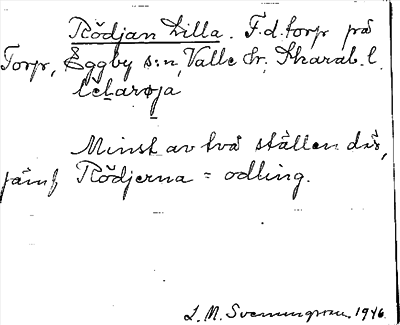 Rödjan Lilla. F.d. torp på
Torp, Eggby s:n, Valle hr, Skarab. l.
Minst av två ställen där,
jämf Rödjerna = odling.
L. M. Svenungsson. 1946.